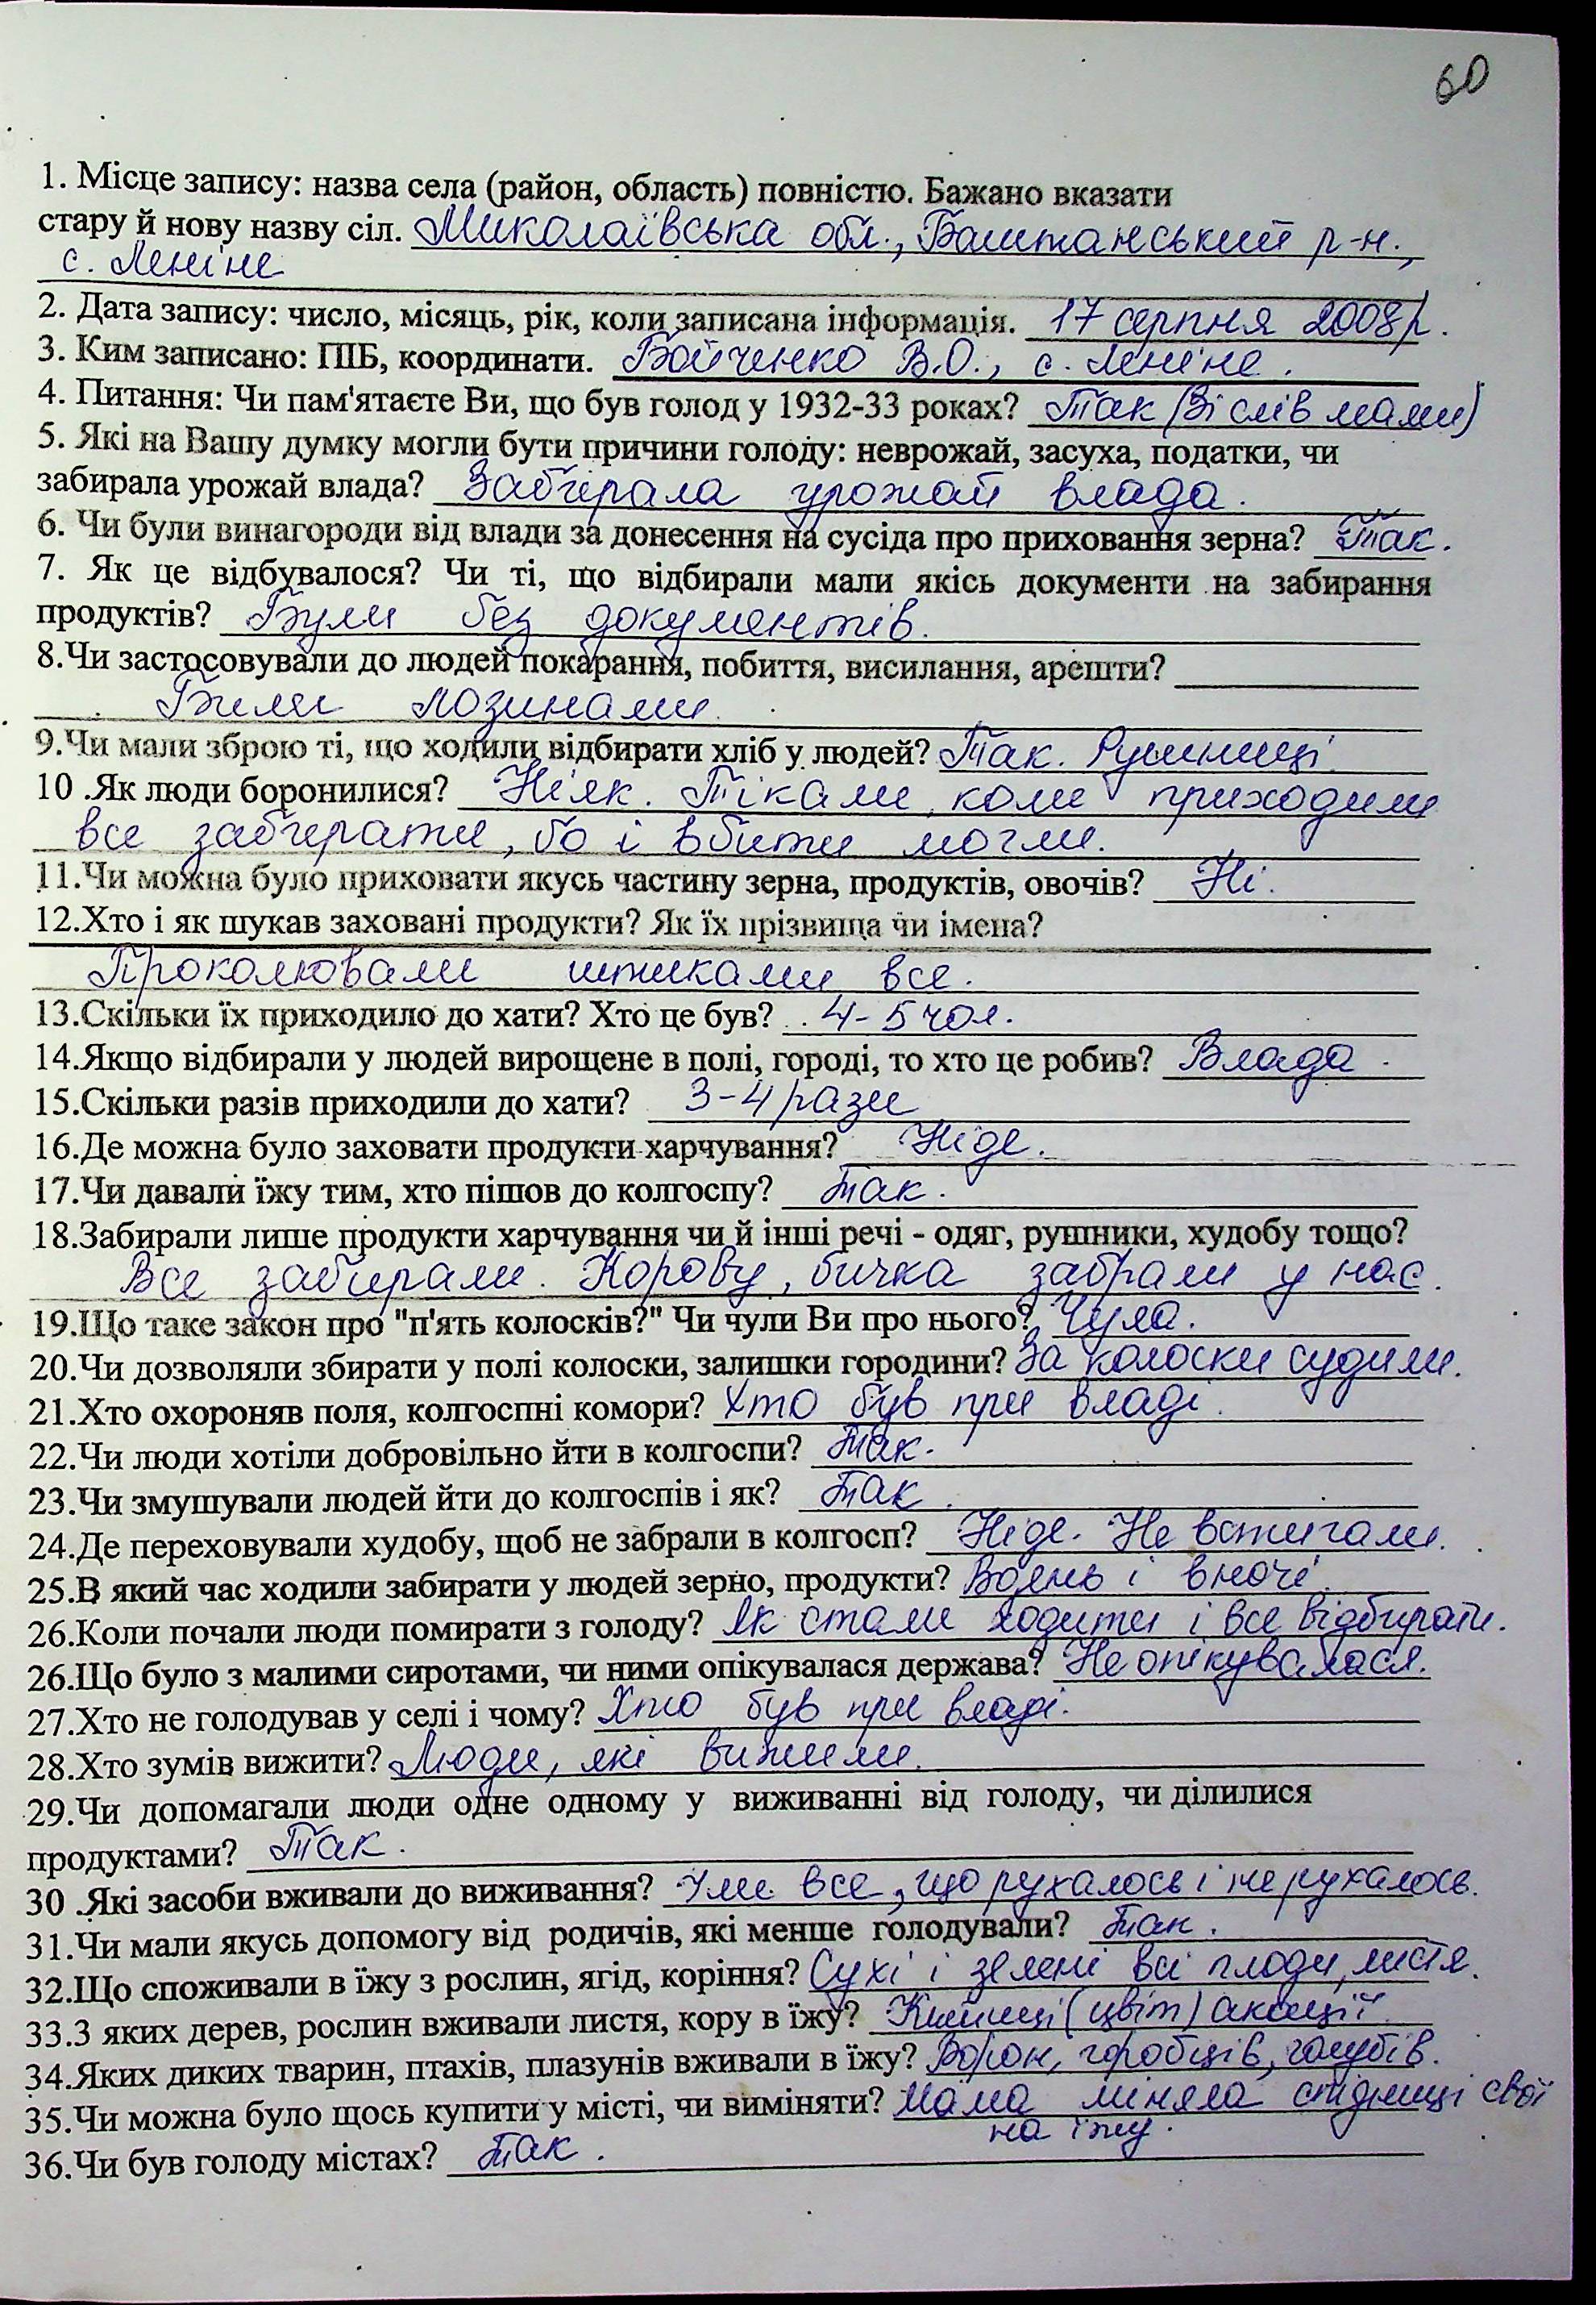 60
1. Місце запису: назва села (район, область) повністю. Бажано вказати
стару й нову назву сіл. Миколаївська обл., Баштанський р-н.,
с. Леніне
2. Дата запису: число, місяць, рік, коли записана інформація. 17 серпня 2008р.
3. Ким записано: ПІБ, координати. Бойченко В.О., с. Леніне.
4. Питання: Чи пам'ятаєте Ви, що був голод у 1932-33 роках? Так (Зі слів мами)
5. Які на Вашу думку могли бути причини голоду: неврожай, засуха, податки, чи
забирала урожай влада? Забирала урожай влада.
6. Чи були винагороди від влади за донесення на сусіда про приховання зерна? Так.
7. Як це відбувалося? Чи ті, що відбирали мали якісь документи на забирання
продуктів? Були без документів.
8.Чи застосовували до людей покарання, побиття, висилання, арешти?
Били лозинами.
9.Чи мали зброю ті, що ходили відбирати хліб у людей? Так. Рушниці.
10 .Як люди боронилися? Ніяк. Тікали, коли приходили
все забирати, бо і вбити могли.
11.Чи можна було приховати якусь частину зерна, продуктів, овочів? Ні.
12.Хто і як шукав заховані продукти? Як їх прізвища чи імена?
Проколювали штиками все.
13.Скільки їх приходило до хати? Хто це був? 4-5 чол.
14.Якщо відбирали у людей вирощене в полі, городі, то хто це робив? Влада.
15.Скільки разів приходили до хати? 3-4 рази
16.Де можна було заховати продукти харчування? Ніде.
17.Чи давали їжу тим, хто пішов до колгоспу? Так.
18.Забирали лише продукти харчування чи й інші речі - одяг, рушники, худобу тощо?
Все забирали. Корову, бичка забрали у нас.
19.Що таке закон про "п'ять колосків?" Чи чули Ви про нього? Чула.
20.Чи дозволяли збирати у полі колоски, залишки городини? За колоски судили.
21.Хто охороняв поля, колгоспні комори? Хто був при владі.
22.Чи люди хотіли добровільно йти в колгоспи? Так.
23.Чи змушували людей йти до колгоспів і як? Так.
24.Де переховували худобу, щоб не забрали в колгосп? Ніде. Не встигали.
25.В який час ходили забирати у людей зерно, продукти? Вдень і вночі.
26.Коли почали люди помирати з голоду? Як стали ходити і все відбирати.
26.Що було з малими сиротами, чи ними опікувалася держава? Не опікувалася.
27.Хто не голодував у селі і чому? Хто був при владі.
28.Хто зумів вижити? Люди, які вижили.
29.Чи допомагали люди одне одному у виживанні від голоду, чи ділилися
продуктами? Так.
30 .Які засоби вживали до виживання? Їли все, що рухалось і не рухалось.
31.Чи мали якусь допомогу від родичів, які менше голодували? Так.
32.Що споживали в їжу з рослин, ягід, коріння? Сухі і зелені всі плоди, листя.
33.З яких дерев, рослин вживали листя, кору в їжу? (цвіт) акації.
34.Яких диких тварин, птахів, плазунів вживали в їжу? Ворон, горобців, голубів.
35.Чи можна було щось купити у місті, чи виміняти? Мама міняла спідниці свої
на їжу.
36.Чи був голоду містах? Так.